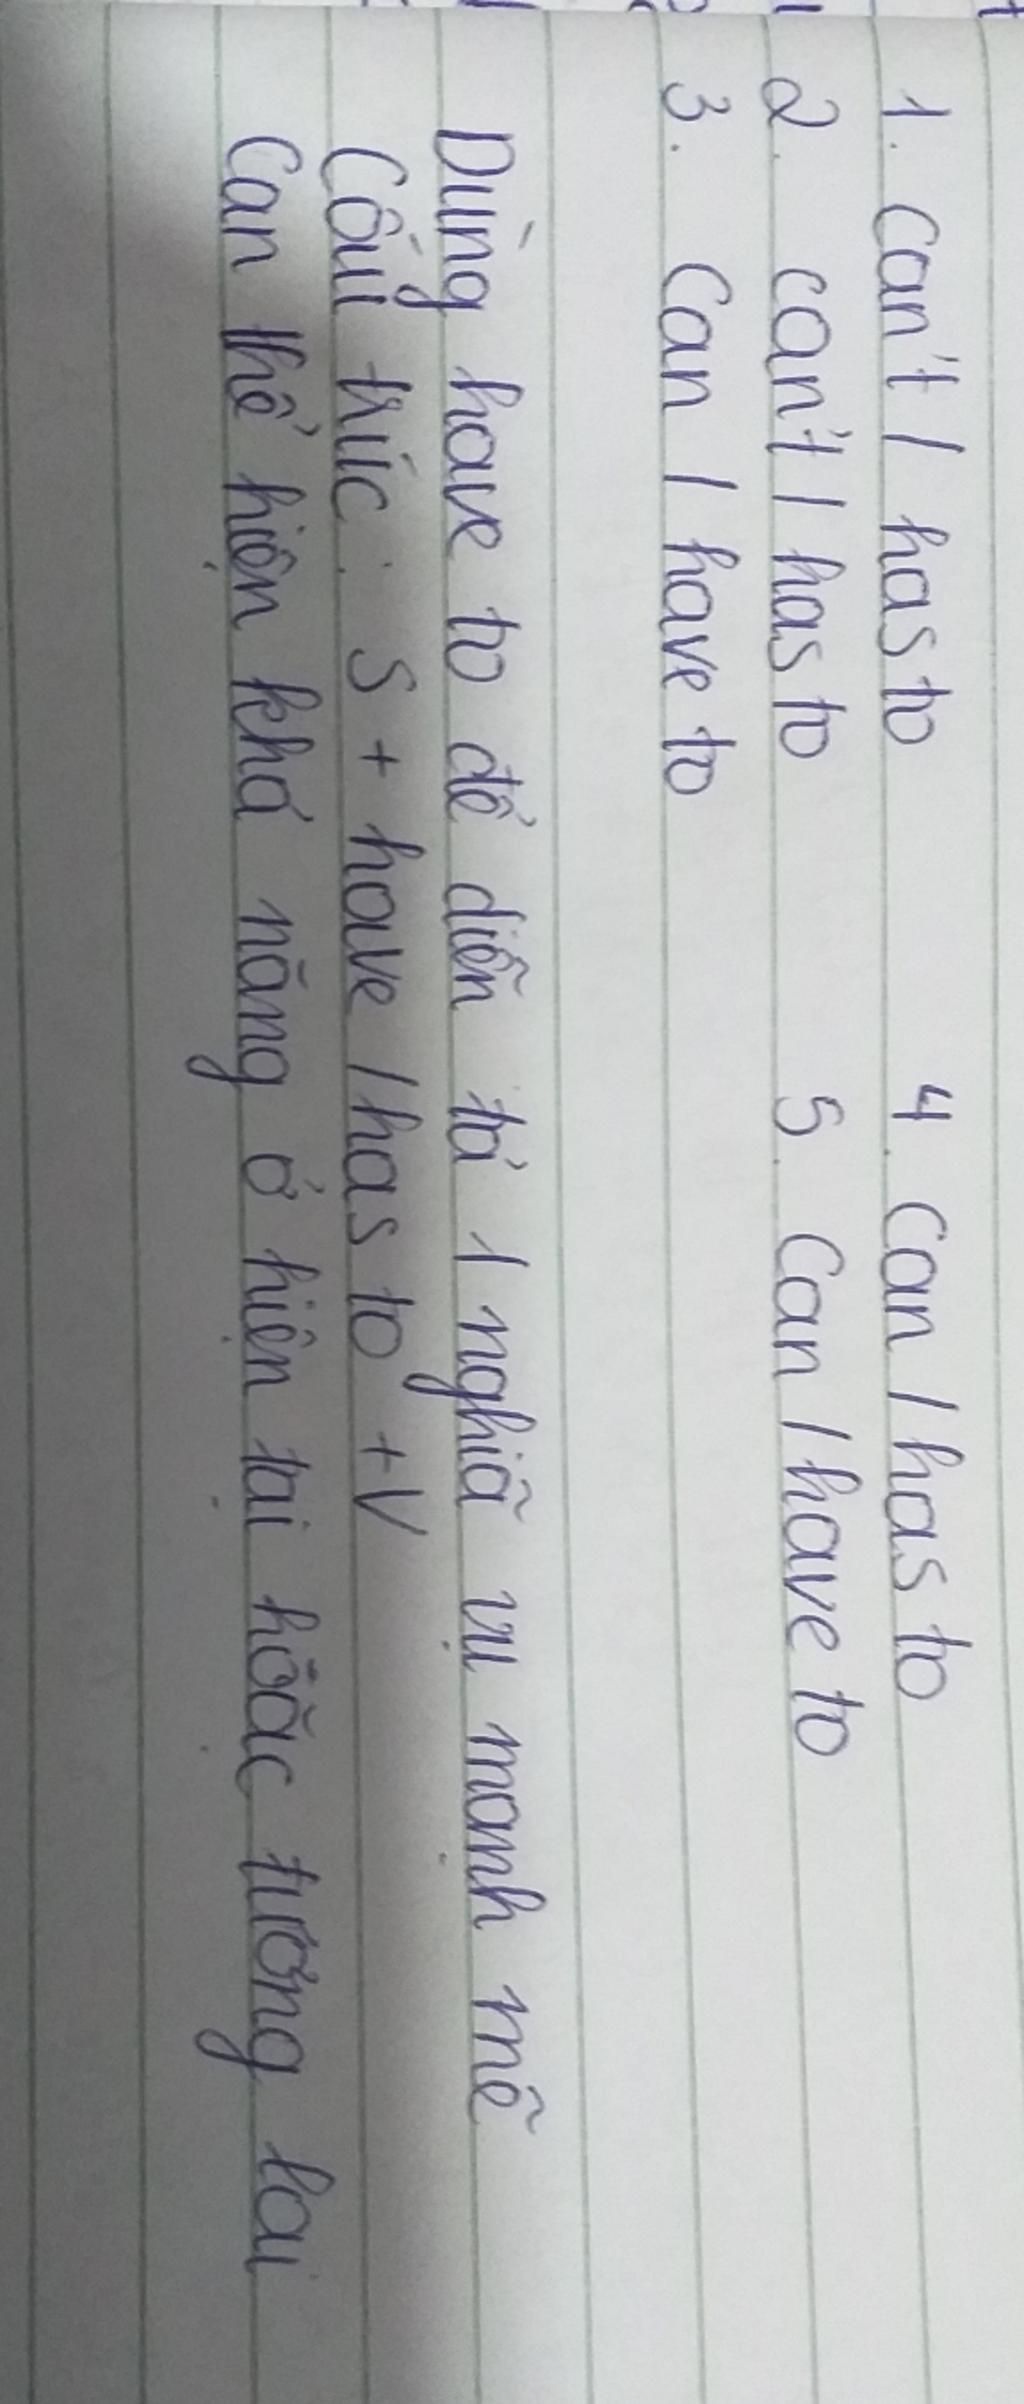 1. Can't / has to 4. Can / has to
2. can't / has to 5. Can / have to
3. Can / have to
Dùng have to để diễn tả 1 nghiã vụ mạnh mẽ
Cấu trúc: S + have / has to + V
Can thể hiện khả năng ở hiện tại hoặc tương lai